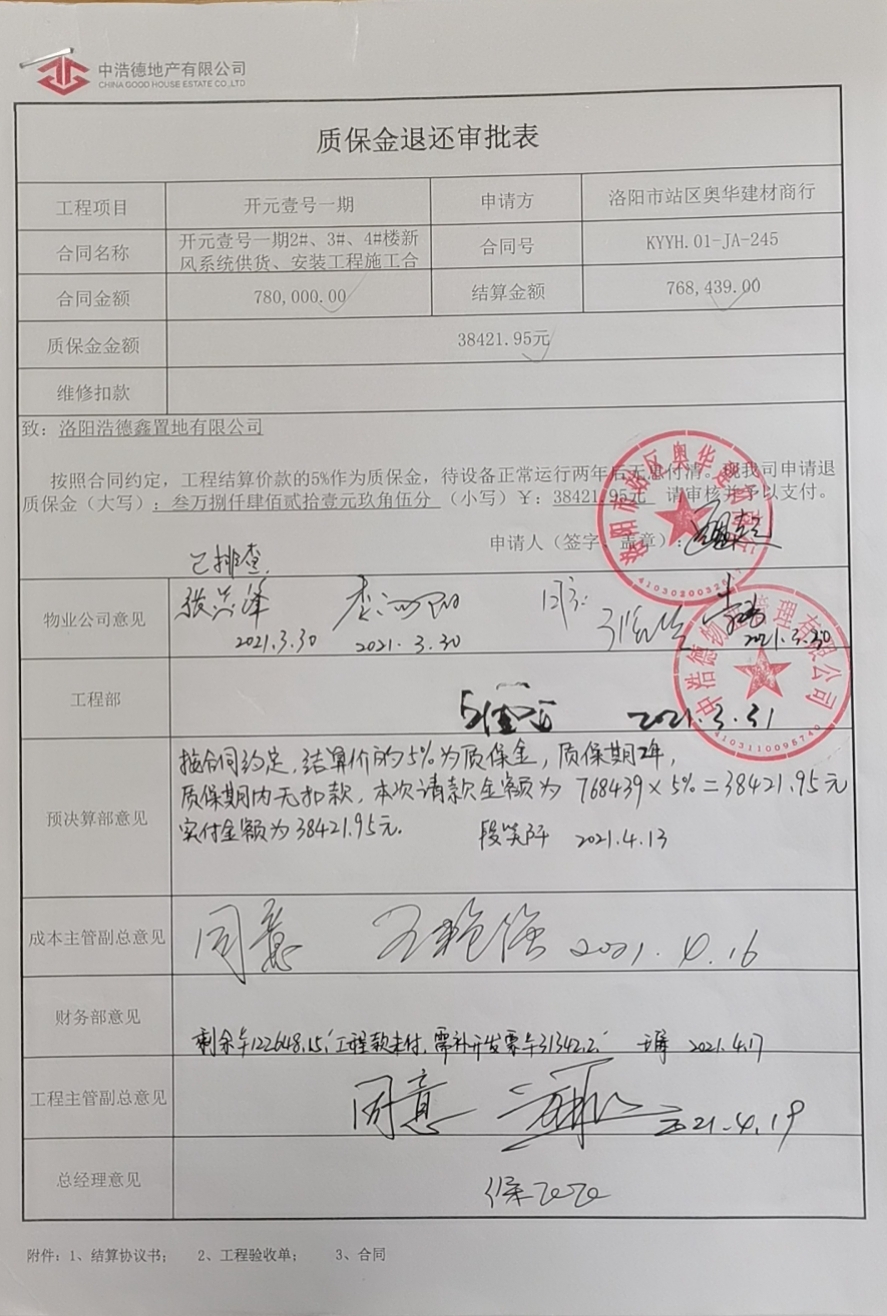 中浩德地产有限公司
CHINA GOOD HOUSE ESTATE CO.,LTD
质保金退还审批表
工程项目 开元壹号一期 申请方 洛阳市站区奥华建材商行
合同名称 开元壹号一期2#、3#、4#楼新
风系统供货、安装工程施工合 合同号 KYYH.01-JA-245
合同金额 780,000.00 结算金额 768,439.00
质保金金额 38421.95元
维修扣款
致：洛阳浩德鑫置地有限公司
按照合同约定，工程结算价款的5%作为质保金，待设备正常运行两年后无息付清。现我司申请退
质保金（大写）：叁万捌仟肆佰贰拾壹元玖角伍分（小写）¥：38421.95元 请审核并予以支付。
申请人（签字、盖章）：
洛阳市站区奥华建材商行
已排查.
物业公司意见
2021.3.30 2021.3.30 2021.3.30
中浩德物业管理有限公司
4103110095740
工程部 2021.3.31
预决算部意见
按合同约定,结算价的5%为质保金,质保期2年,
质保期内无扣款,本次请款金额为 768439×5%=38421.95元
实付金额为38421.95元. 2021.4.13
成本主管副总意见 同意 2021.4.16
财务部意见
剩余¥122648.15工程款未付,需补开发票¥31342.2 2021.4.17
工程主管副总意见 同意 2021.4.19
总经理意见
附件：1、结算协议书； 2、工程验收单； 3、合同